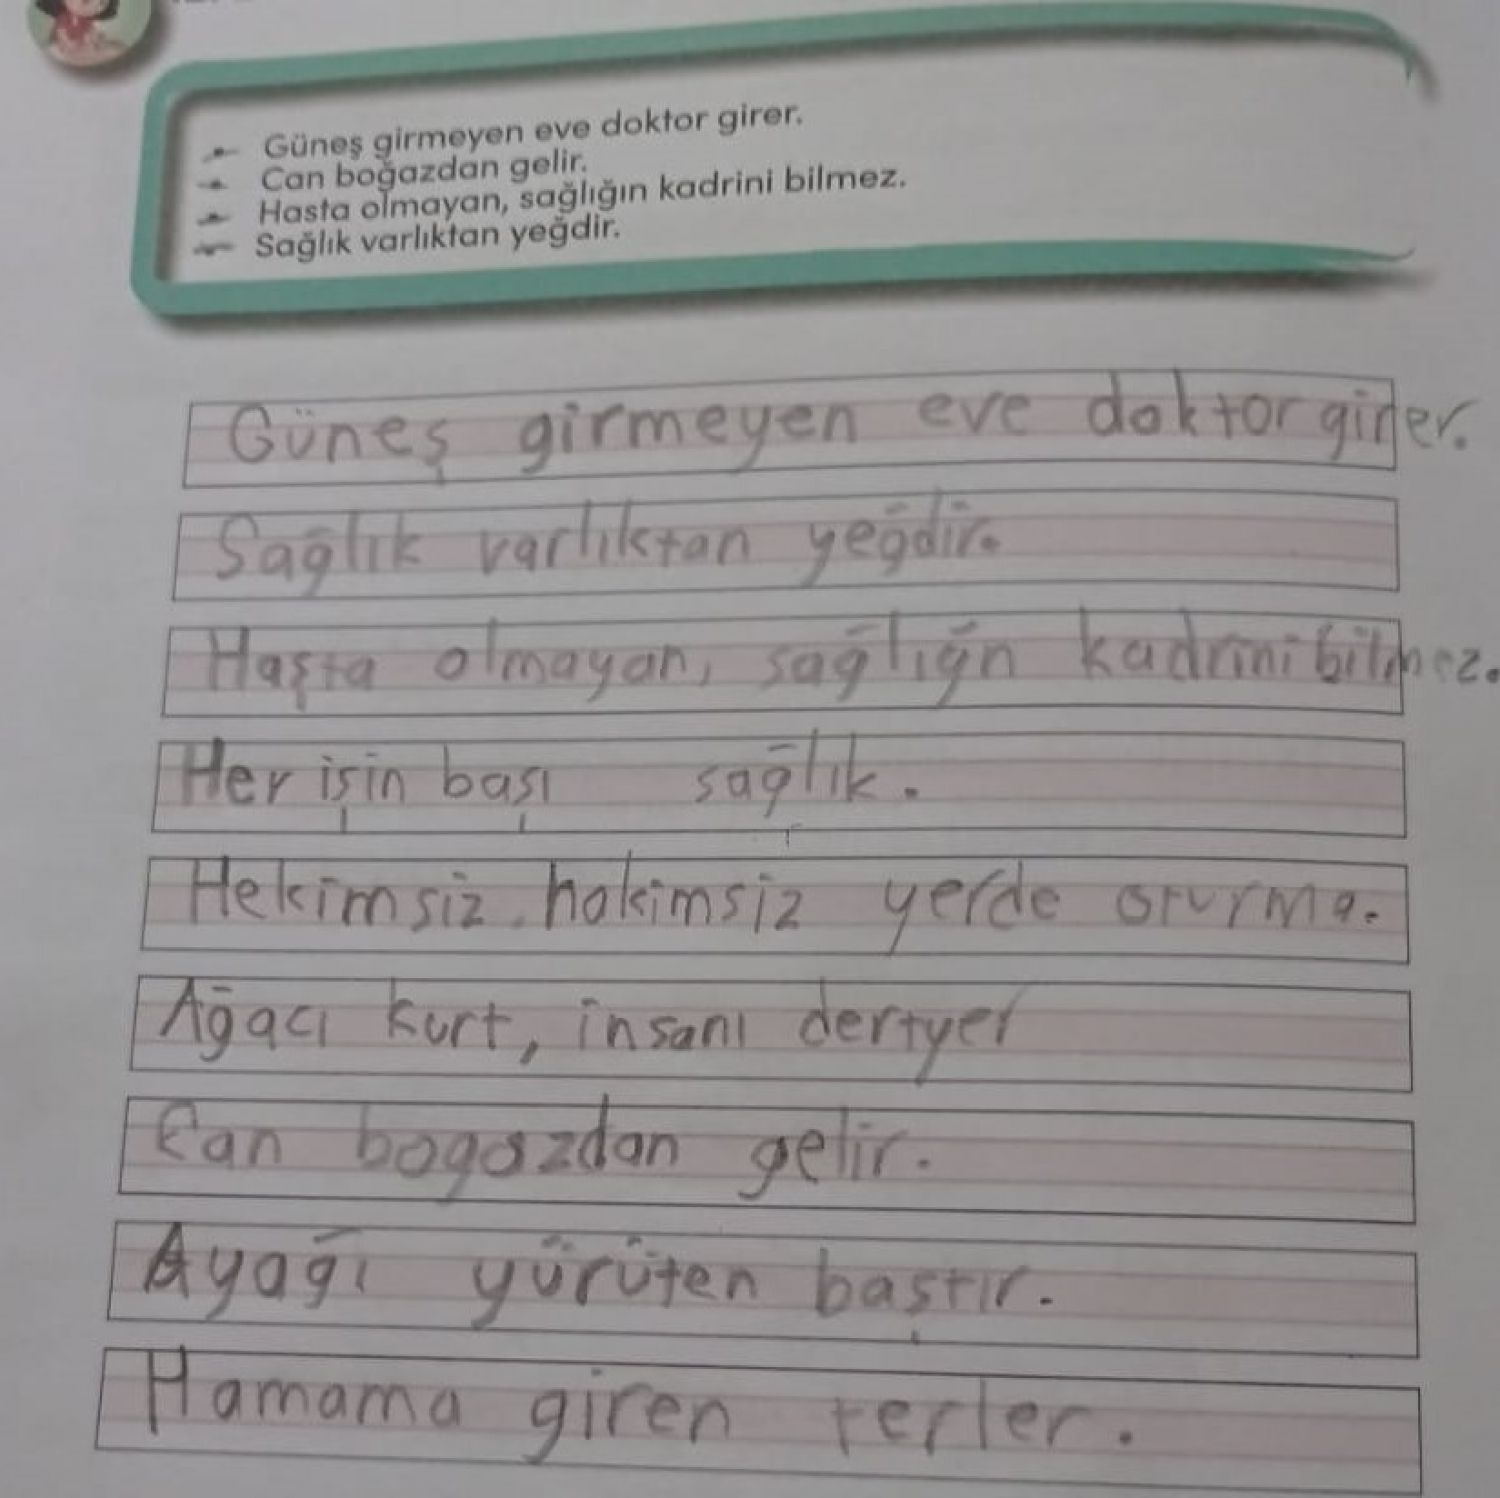 Güneş girmeyen eve doktor girer.
Can boğazdan gelir.
Hasta olmayan, sağlığın kadrini bilmez.
Sağlık varlıktan yeğdir.
Güneş girmeyen eve doktor girer.
Sağlık varlıktan yeğdir.
Haşta olmayan, sağlığn kadrini bilmez.
Her işin başı sağlık.
Hekimsiz, hakimsiz yerde oturma.
Ağacı kurt, insanı dertyer
Can bogazdan gelir.
Ayağı yürüten baştır.
Hamama giren terler.